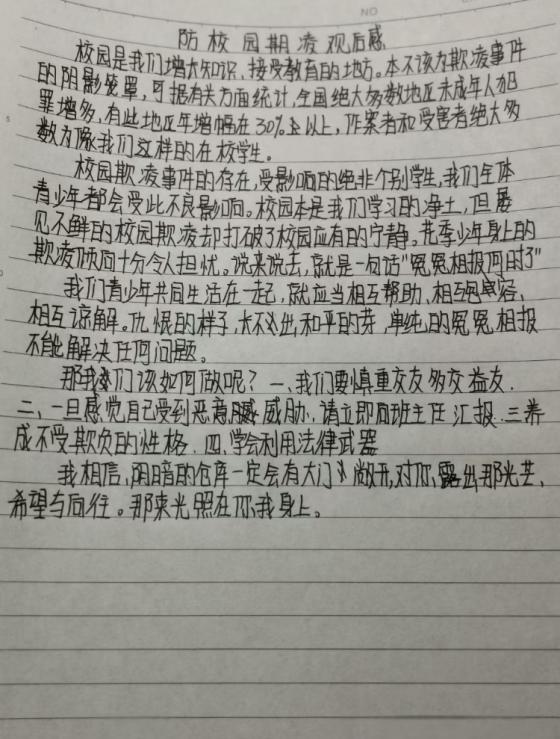 NO
防校园期凌观后感
校园是我们增大知识、接受教育的地方。本不该为欺凌事件
的阴影笼罩,可据有关方面统计,全国绝大多数地区未成年人犯
罪增多,有些地区年增幅在30%至以上,作案者和受害者绝大多
数为像我们这样的在校学生。
校园欺凌事件的存在,受影响的绝非个别学生,我们全体
青少年都会受此不良影响。校园本是我们学习的净土,但屡
见不鲜的校园欺凌却打破了校园应有的宁静。花季少年身上的
欺凌倾向十分令人担忧。说来说去,就是一句话"冤冤相报何时了"
我们青少年共同生活在一起,就应当相互帮助、相互包容、
相互谅解。仇恨的种子,太不出和平的芽,单纯的冤冤相报
不能解决任何问题。
那我们该如何做呢?一、我们要慎重交友多交益友.
二、一旦感觉自己受到恶意威胁,请立即向班主任汇报.三养
成不受欺负的性格.四、学会利用法律武器
我相信,阴暗的仓库一定会有大门敞开,对你露出那光芒、
希望与向往。那束光照在你我身上。